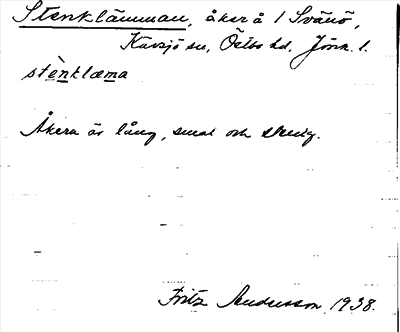 Stenklämman, åker å 1 Svänö,
Kävsjö sn, Östbo hd, Jönk. l.
stènklæma
Åkern är lång, smal och stenig.
Fritz Andersson 1938.